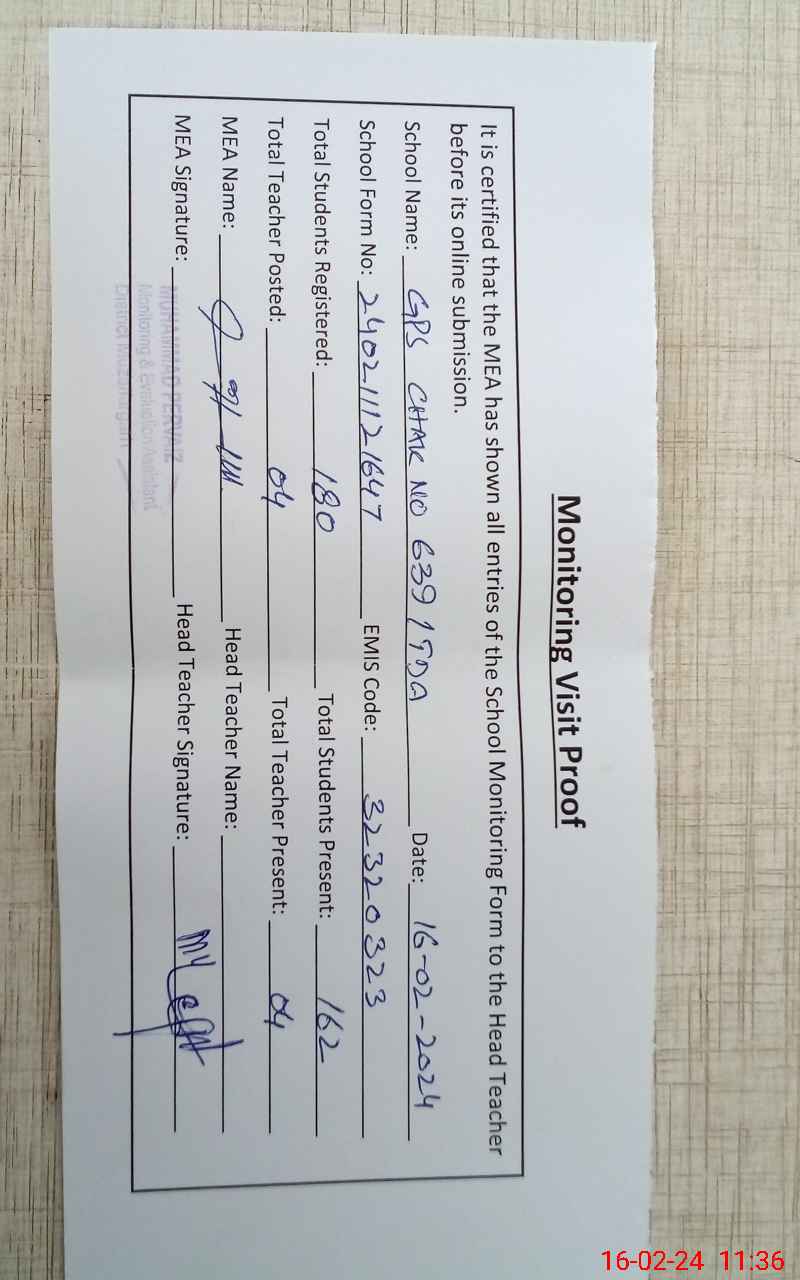 Monitoring Visit Proof
It is certified that the MEA has shown all entries of the School Monitoring Form to the Head Teacher
before its online submission.
School Name: GPS CHAK NO 639/TDA Date: 16-02-2024
School Form No: 240211121647 EMIS Code: 32320323
Total Students Registered: 180 Total Students Present: 162
Total Teacher Posted: 04 Total Teacher Present: 04
MEA Name: Head Teacher Name:
MEA Signature: Head Teacher Signature:
MUHAMMAD PERVAIZ
Monitoring & Evaluation Assistant
District Muzaffargarh
16-02-24 11:36